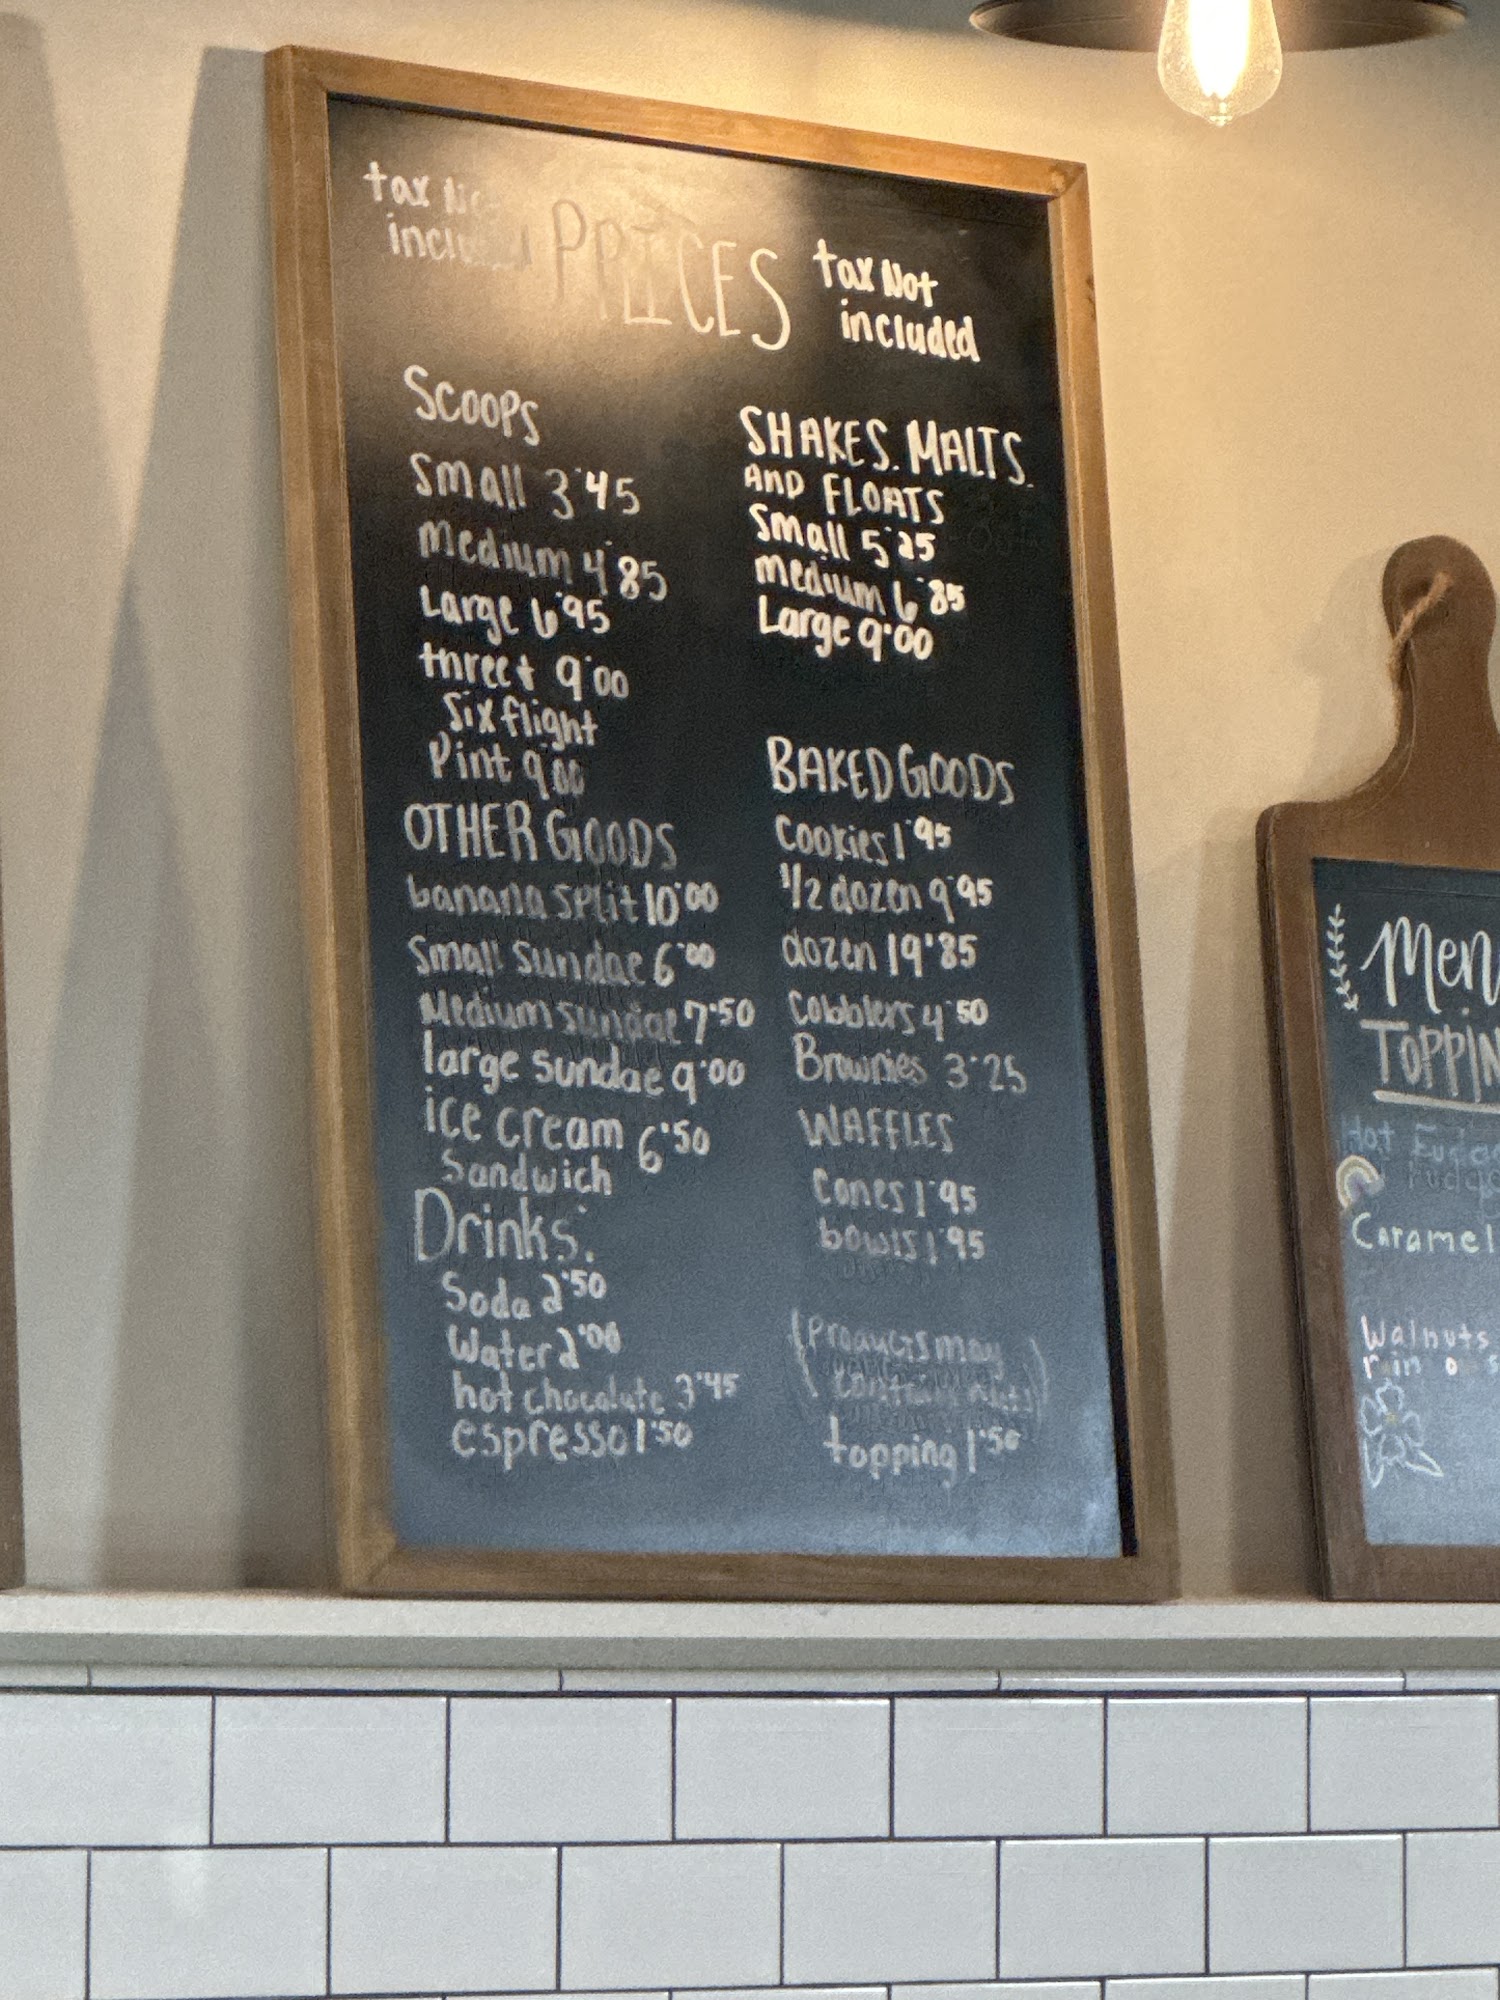 tax Not
included
PRICES
tax Not
included
SCOOPS
Small 3.45
Medium 4.85
Large 6.95
three + 9.00
Six flight
Pint 9.00
OTHER GOODS
banana split 10.00
Small sundae 6.00
Medium sundae 7.50
large sundae 9.00
ice cream 6.50
Sandwich
Drinks:
Soda 2.50
Water 2.00
hot chocolate 3.45
espresso 1.50
SHAKES. MALTS.
AND FLOATS
Small 5.25
medium 6.85
Large 9.00
BAKED GOODS
Cookies 1.95
1/2 dozen 9.95
dozen 19.85
Cobblers 4.50
Brownies 3.25
WAFFLES
Cones 1.95
bowls 1.95
(Products may
contain nuts)
topping 1.50
Men
TOPPIN
Hot Fudge
Caramel
Walnuts